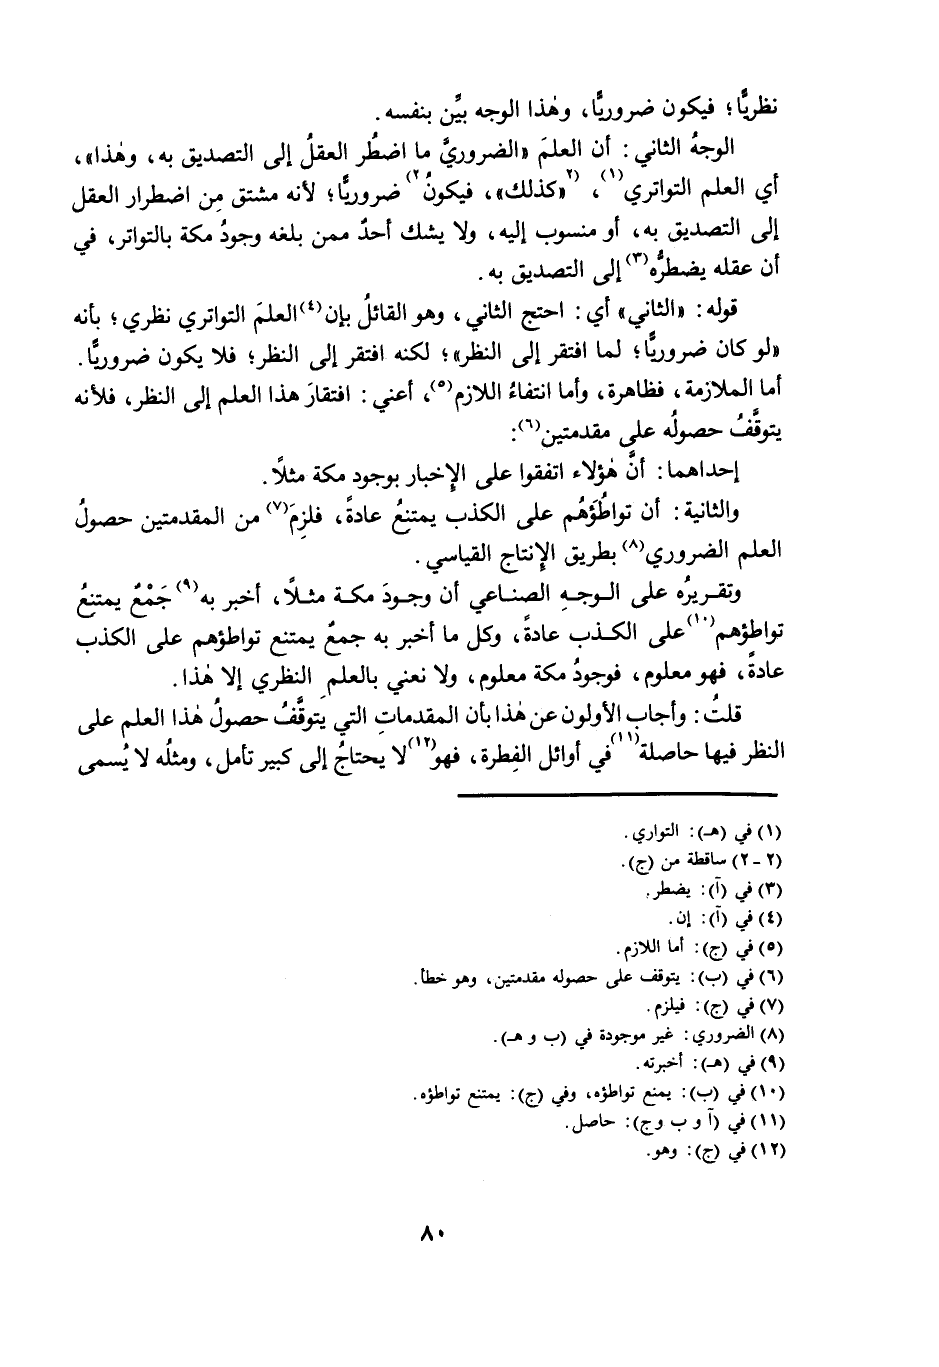 نظريًّا؛ فيكون ضروريًّا، وهٰذا الوجه بيِّن بنفسه.
الوجهُ الثاني: أن العلمَ «الضروريَّ ما اضطُر العقلُ إلى التصديق به، وهٰذا»،
أي العلم التواتري(١)، (٢«كذلك»، فيكونُ٢) ضروريًّا؛ لأنه مشتق مِن اضطرار العقل
إلى التصديق به، أو منسوب إليه، ولا يشك أحدٌ ممن بلغه وجودُ مكة بالتواتر، في
أن عقله يضطرُّه(٣) إلى التصديق به.
قوله: «الثاني» أي: احتج الثاني، وهو القائلُ بإن(٤) العلمَ التواتري نظري؛ بأنه
«لو كان ضروريًّا؛ لما افتقر إلى النظر»؛ لكنه افتقر إلى النظر؛ فلا يكون ضروريًّا.
أما الملازمة، فظاهرة، وأما انتفاءُ اللازم(٥)، أعني: افتقارَ هذا العلم إلى النظر، فلأنه
يتوقَّفُ حصولُه على مقدمتين(٦):
إحداهما: أنَّ هٰؤلاء اتفقوا على الإِخبار بوجود مكة مثلاً.
والثانية: أن تواطُؤَهُم على الكذب يمتنعُ عادةً، فلزِمَ(٧) من المقدمتين حصولُ
العلم الضروري(٨) بطريق الإِنتاج القياسي.
وتقريرُه على الوجهِ الصناعي أن وجودَ مكة مثلاً، أخبر به(٩) جَمْعٌ يمتنعُ
تواطؤهم(١٠) على الكذب عادةً، وكل ما أخبر به جمعٌ يمتنع تواطؤهم على الكذب
عادةً، فهو معلوم، فوجودُ مكة معلوم، ولا نعني بالعلمِ النظري إلا هٰذا.
قلتُ: وأجاب الأولون عن هٰذا بأن المقدماتِ التي يتوقَّفُ حصولُ هٰذا العلم على
النظر فيها حاصلة(١١) في أوائل الفِطرة، فهو(١٢) لا يحتاجُ إلى كبير تأمل، ومثلُه لا يُسمى
(١) في (هـ): التواري.
(٢ - ٢) ساقطة من (ج).
(٣) في (آ): يضطر.
(٤) في (آ): إن.
(٥) في (ج): أما اللازم.
(٦) في (ب): يتوقف على حصوله مقدمتين، وهو خطأ.
(٧) في (ج): فيلزم.
(٨) الضروري: غير موجودة في (ب و هـ).
(٩) في (هـ): أخبرته.
(١٠) في (ب): يمنع تواطؤه، وفي (ج): يمتنع تواطؤه.
(١١) في (آ و ب وج): حاصل.
(١٢) في (ج): وهو.
٨٠